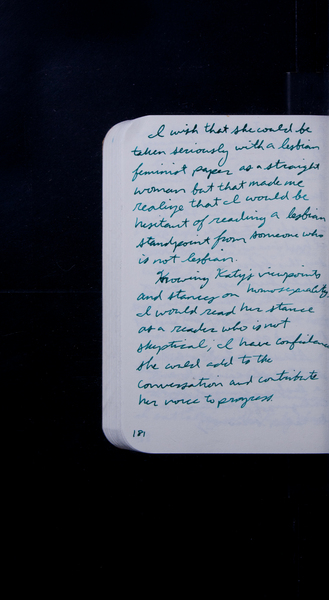 I wish that she could be
taken seriously with a lesbian
feminist paper as a straight
woman but that made me
realize that I would be
hesitant of reading a lesbian
standpoint from someone who
is not lesbian.
Knowing Katy's viewpoints
and stances on homosexuality
I would read her stance
as a reader who is not
skeptical; I have confidence
she could add to the
conversation and contribute
her voice to progress.
181